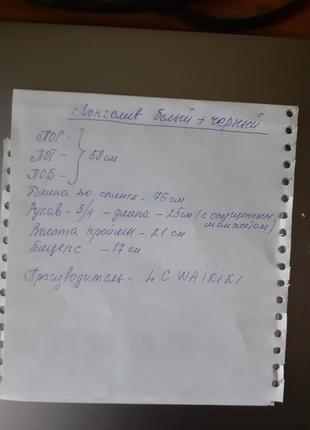 Лонгслив белый + черный
ПОГ -
ПОТ - } 58 см
ПОБ -
Длина по спинке - 76 см
Рукав - 3/4 - длина - 25см (с спущенным
манжетом)
Высота проймы - 21 см
Бицепс - 17 см
Производитель - LC WAIKIKI